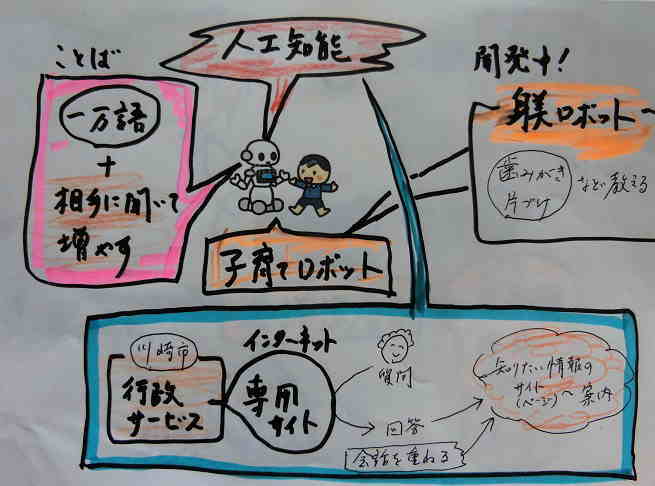 人工知能
ことば
一万語
+
相手に聞いて
増やす
開発中!
躾ロボット
歯みがき
片づけ
など教える
子育てロボット
川崎市
行政
サービス
インターネット
専用
サイト
質問
回答
会話を重ねる
知りたい情報の
サイト
(ページ)へ案内